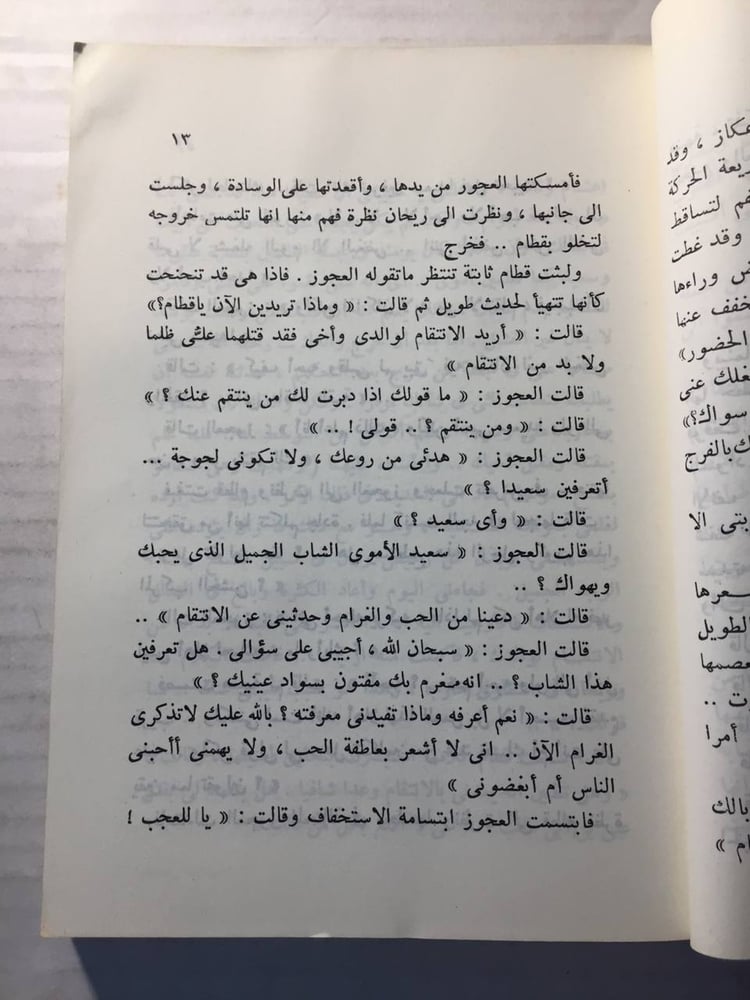 ١٣
فأمسكتها العجوز من يدها ، وأقعدتها على الوسادة ، وجلست
الى جانبها ، ونظرت الى ريحان نظرة فهم منها انها تلتمس خروجه
لتخلو بقطام .. فخرج
ولبثت قطام ثابتة تنتظر ماتقوله العجوز . فاذا هى قد تنحنحت
كأنها تتهيأ لحديث طويل ثم قالت : « وماذا تريدين الآن ياقطام؟»
قالت : « أريد الانتقام لوالدى وأخى فقد قتلهما على ظلما
ولا بد من الانتقام »
قالت العجوز : « ما قولك اذا دبرت لك من ينتقم عنك ؟ »
قالت : « ومن ينتقم ؟ .. قولى ! .. »
قالت العجوز : « هدئى من روعك ، ولا تكونى لجوجة ...
أتعرفين سعيدا ؟ »
قالت : « وأى سعيد ؟ »
قالت العجوز : « سعيد الأموى الشاب الجميل الذى يحبك
ويهواك ؟ ..
قالت : « دعينا من الحب والغرام وحدثينى عن الانتقام » ..
قالت العجوز : « سبحان الله ، أجيبى على سؤالى . هل تعرفين
هذا الشاب ؟ .. انه مغرم بك مفتون بسواد عينيك ؟ »
قالت : « نعم أعرفه وماذا تفيدنى معرفته ؟ بالله عليك لاتذكرى
الغرام الآن .. انى لا أشعر بعاطفة الحب ، ولا يهمنى أأحبنى
الناس أم أبغضونى »
فابتسمت العجوز ابتسامة الاستخفاف وقالت : « يا للعجب !
عكاز ، وقد
الحركة
لتساقط
وقد غطت
وراءها
عنها
الحضور»
عنى
سواك؟»
بالفرج
الا
الطويل
..
أمرا
بالك
»